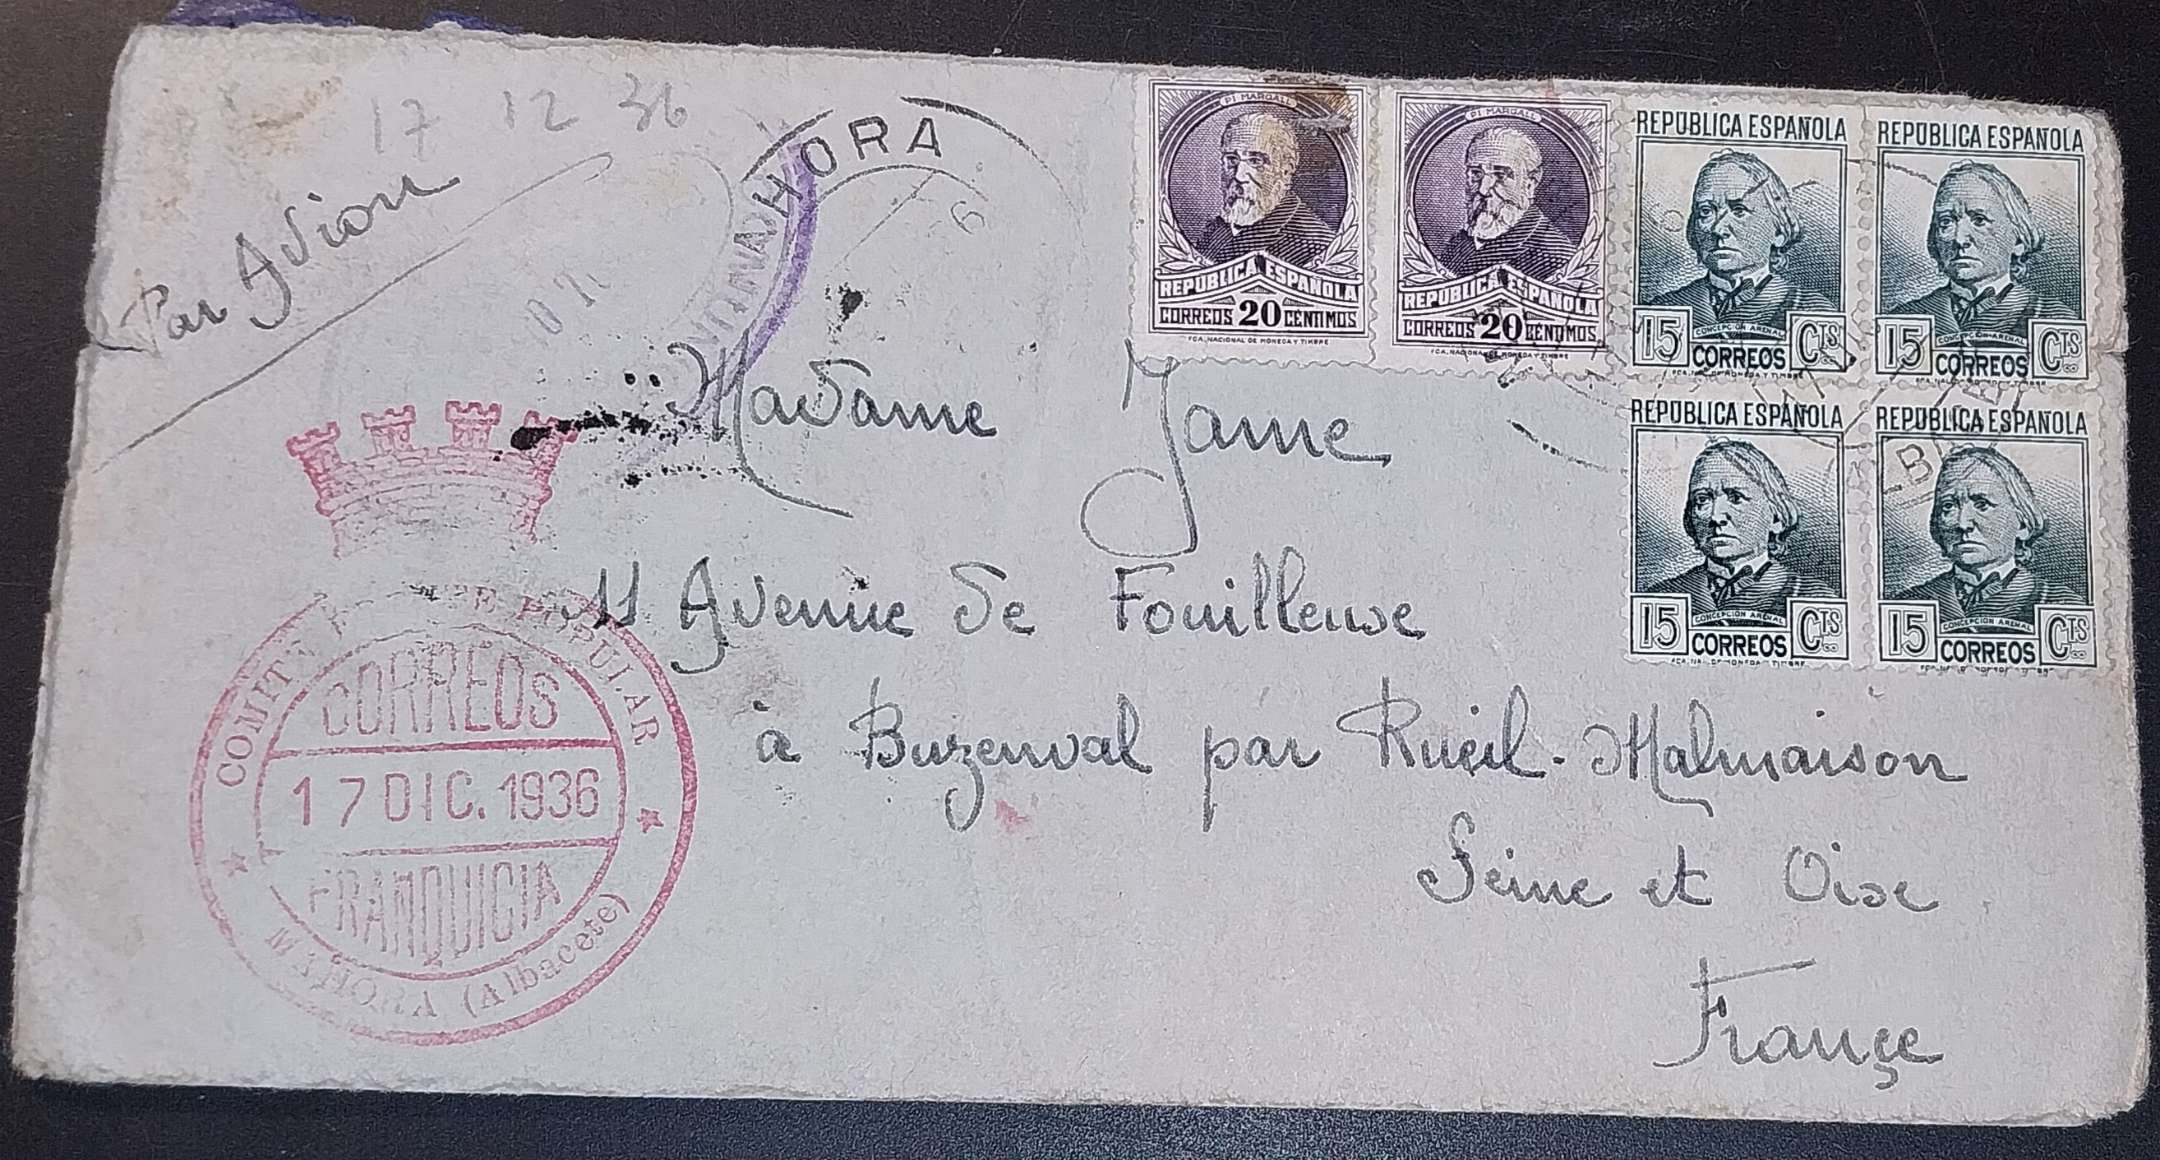 17 12 36
Par Avion
MAHORA
PI MARGALL
REPUBLICA ESPAÑOLA
CORREOS 20 CENTIMOS
FCA. NACIONAL DE MONEDA Y TIMBRE
PI MARGALL
REPUBLICA ESPAÑOLA
CORREOS 20 CENTIMOS
FCA. NACIONAL DE MONEDA Y TIMBRE
REPUBLICA ESPAÑOLA
CONCEPCION ARENAL
15 CORREOS CTS
REPUBLICA ESPAÑOLA
CONCEPCION ARENAL
15 CORREOS CTS
REPUBLICA ESPAÑOLA
CONCEPCION ARENAL
15 CORREOS CTS
REPUBLICA ESPAÑOLA
CONCEPCION ARENAL
15 CORREOS CTS
Madame Jame
11 Avenue de Fouilleuse
à Buzenval par Rueil-Malmaison
Seine et Oise
France
COMITE FRENTE POPULAR
CORREOS
17 DIC. 1936
FRANQUICIA
MAHORA (Albacete)